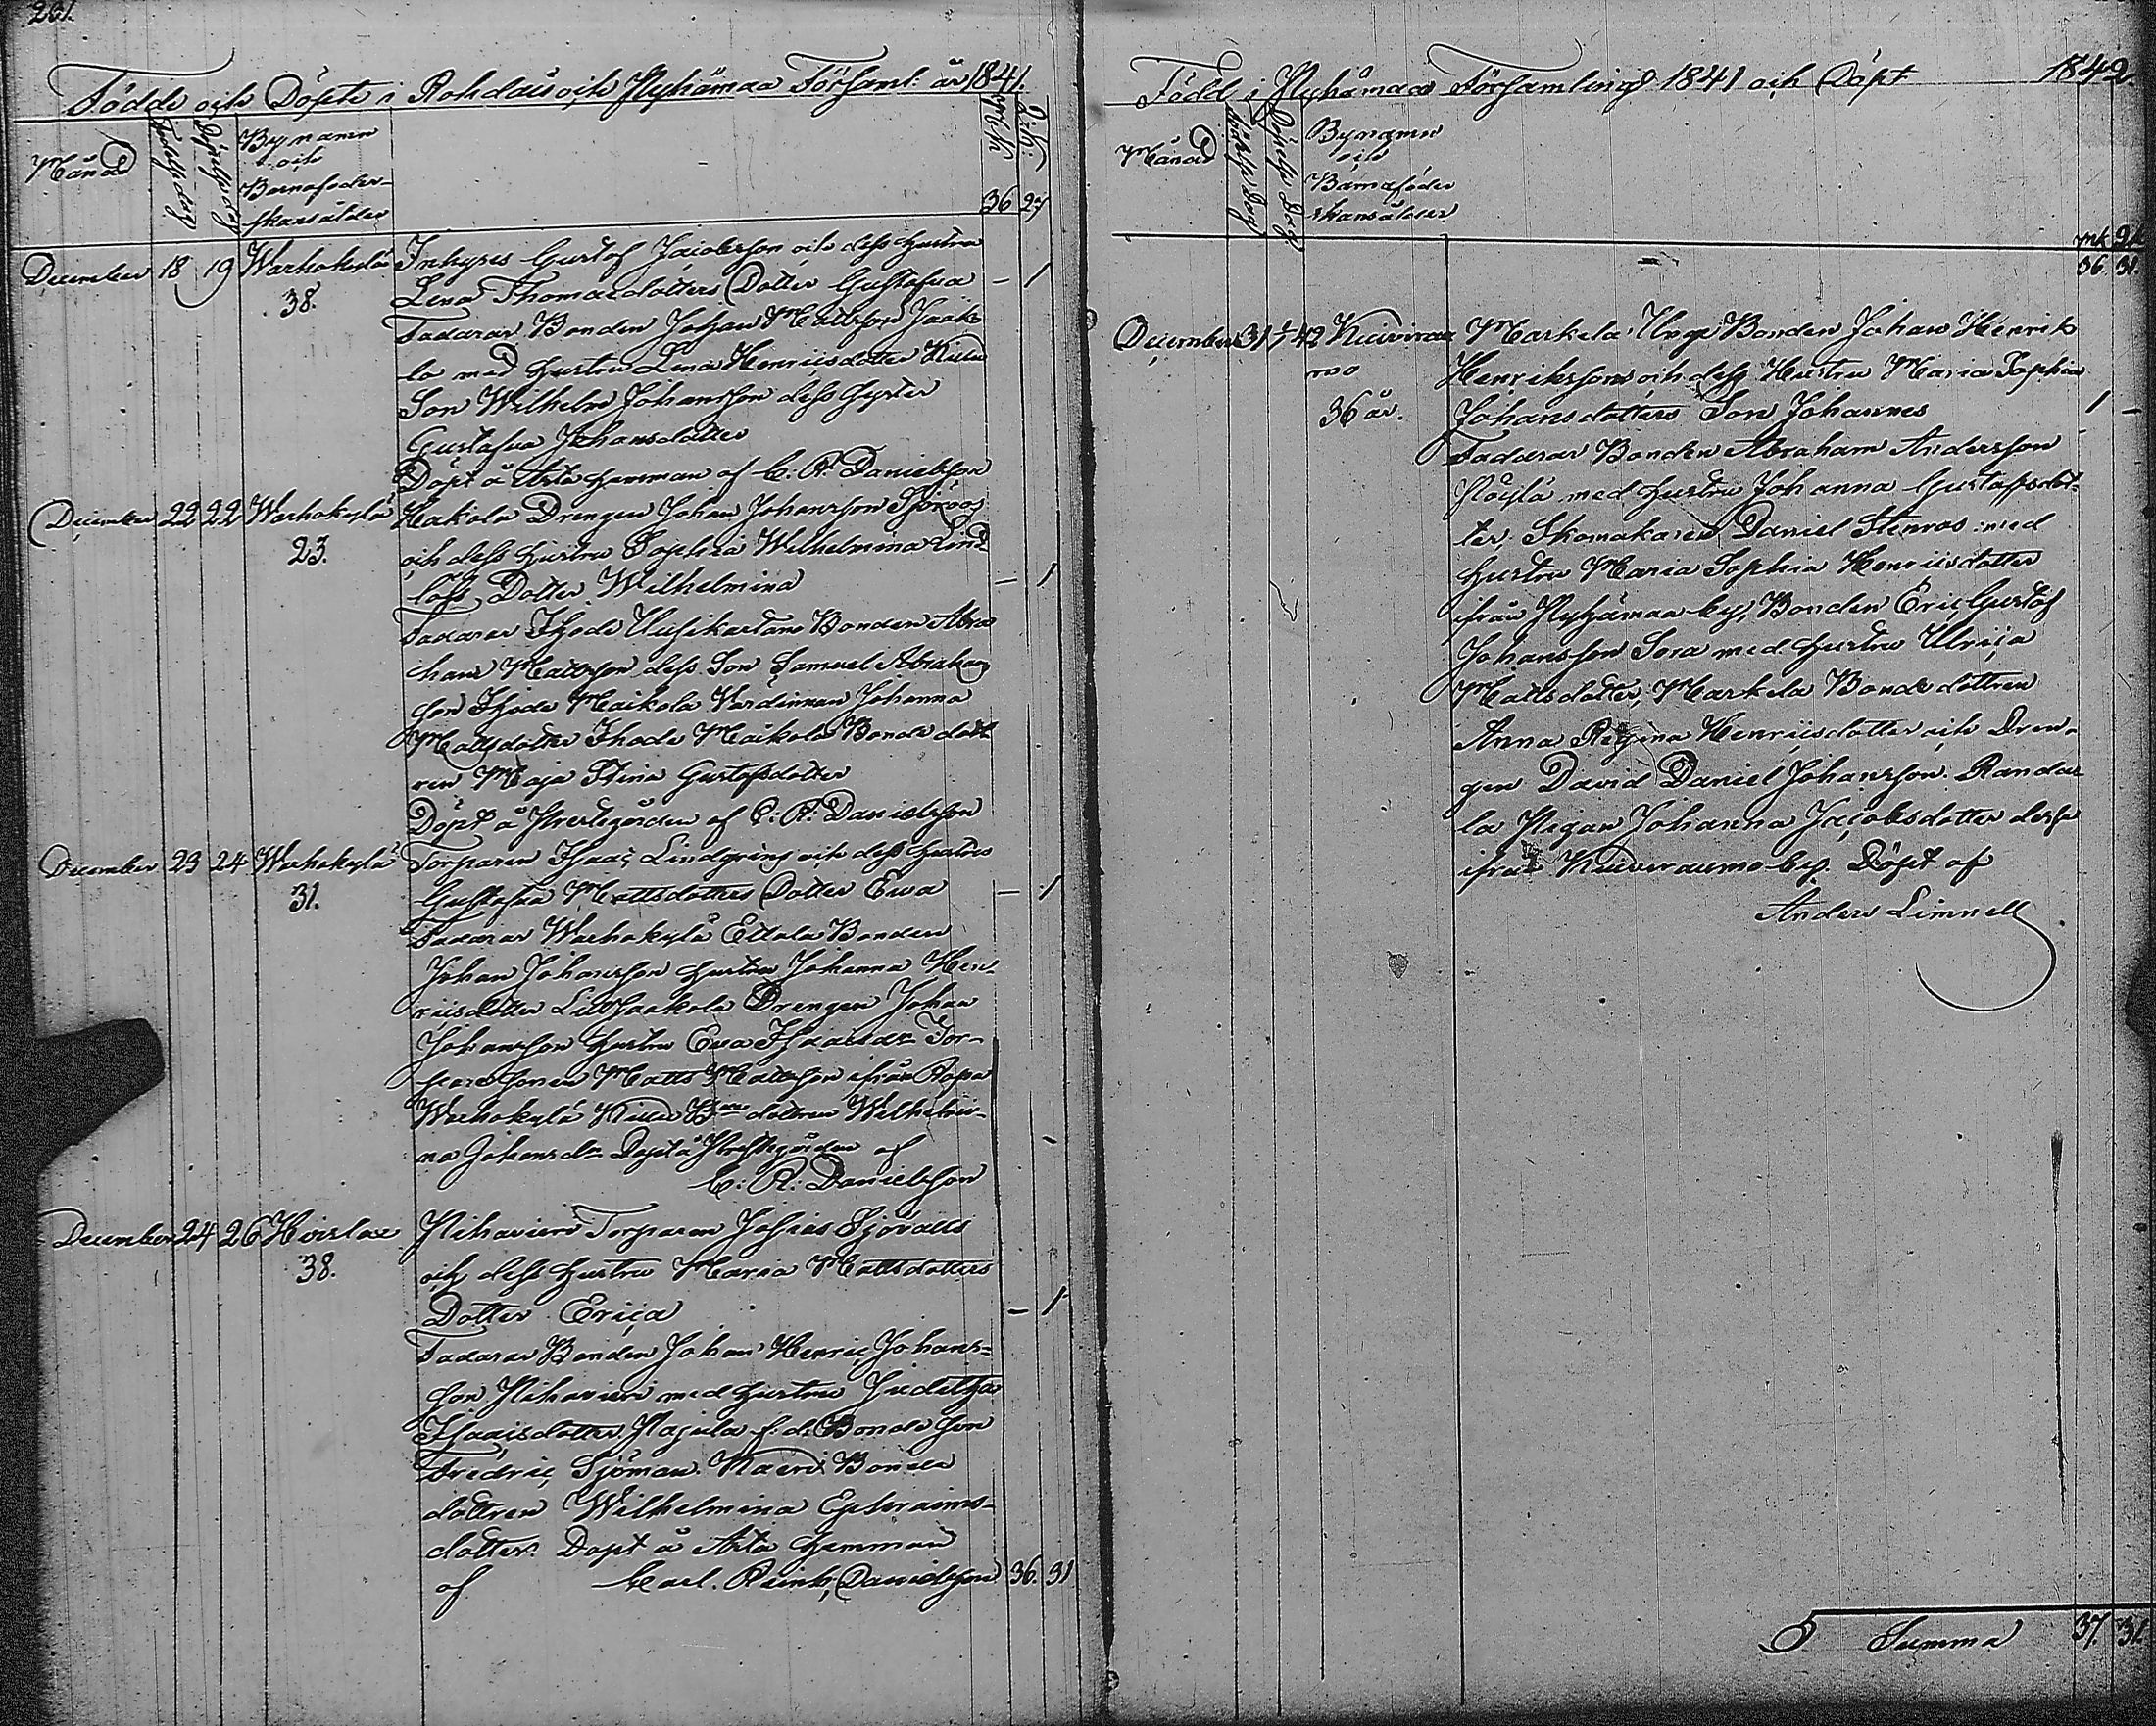 261.
Födde och Döpte i Rohdais och Pyhämaa Församl. år 1841.
Månad
Födelsedag
Döpelsedag
Bynamn
och
Barnaföder-
skans ålder
Mk
Qk:
36 27
December 18 19 Warhokylä Inhyses Gustaf Jacobsson och dess hustru
38. Lena Thomasdotters Dotter Gustafva — 1
Faddrar Bonden Johan Mattsson Jaako
la med hustru Lena Henricsdotter
Son Wilhelm Johansson dess syster
Gustafva Johansdotter
Döpt å Arta hemman af C: R: Danielsson
December 22 22 Warhokylä Hakola Drengen Johan Johansson Sjöroos
23. och dess hustru Sophia Wilhelmina Lind-
löfs Dotter Wilhelmina — 1
Faddrar Ihode Uusikartano Bonden Abra
ham Mattsson dess Son Samuel Abrahams
son Ihode Maikola Värdinnan Johanna
Mattsdotter Ihode Maikola Bonde dott
ren Maja Stina Gustafsdotter
Döpt å Prestegården af C: R: Danielsson
December 23 24 Warhokylä Torparen Isaac Lindgrens och dess hustru
31. Gustafva Mattsdotters Dotter Ewa — 1
Faddrar Warhokylä Ettala Bonden
Johan Johansson hustru Johanna Hen-
ricsdotter Drengen Johan
Johansson hustru Ewa Isaacsdr Tor-
pare sonen Matts Mattsson ifrån Ropa
Warhokylä dottren Wilhelmi-
na Johansdr Döpt å Prestegården af
C: R: Danielsson
December 24 26 38. Torparen Josias Sjövalls
och dess hustru Maria Mattsdotters
Dotter Erica — 1
Faddrar Bonden Johan Henric Johans-
son med hustru Juditha
Isaacsdotter. f: d: Bonde son
Fredric Sjöman. Bonde
dottren Wilhelmina Ephraims-
dotter. Döpt å Arta hemman
af Carl. Reinh; Danielsson 36. 31
Född i Pyhämaa Församling 1841 och Döpt 1842.
Månad
Födelse Dag
Döpelse Dag
Bynamn
och
Barnaföder
skans ålder
Mk Qk
36. 31.
December 31 1/1 42 Kuivirau Markela Unge Bonden Johan Henrik
mo Henrikssons och dess Hustru Maria Sophia
36 år. Johansdotters Son Johannes 1 —
Faddrar Bonden Abraham Andersson
med hustru Johanna Gustafsdot-
ter, Skomakaren Daniel Stenroos med
hustru Maria Sophia Henricsdotter
ifrån Pyhämaa by, Bonden Eric Gustaf
Johansson Sora med hustru Ulrica
Mattsdotter, Markela Bonde dottren
Anna Regina Henricsdotter och Dren-
gen David Daniel Johansson. Randa
la Pigan Johanna Jacobsdotter desse
ifrån Kuiviraumo by. Döpt af
Anders Limnell
Summa 37. 31.